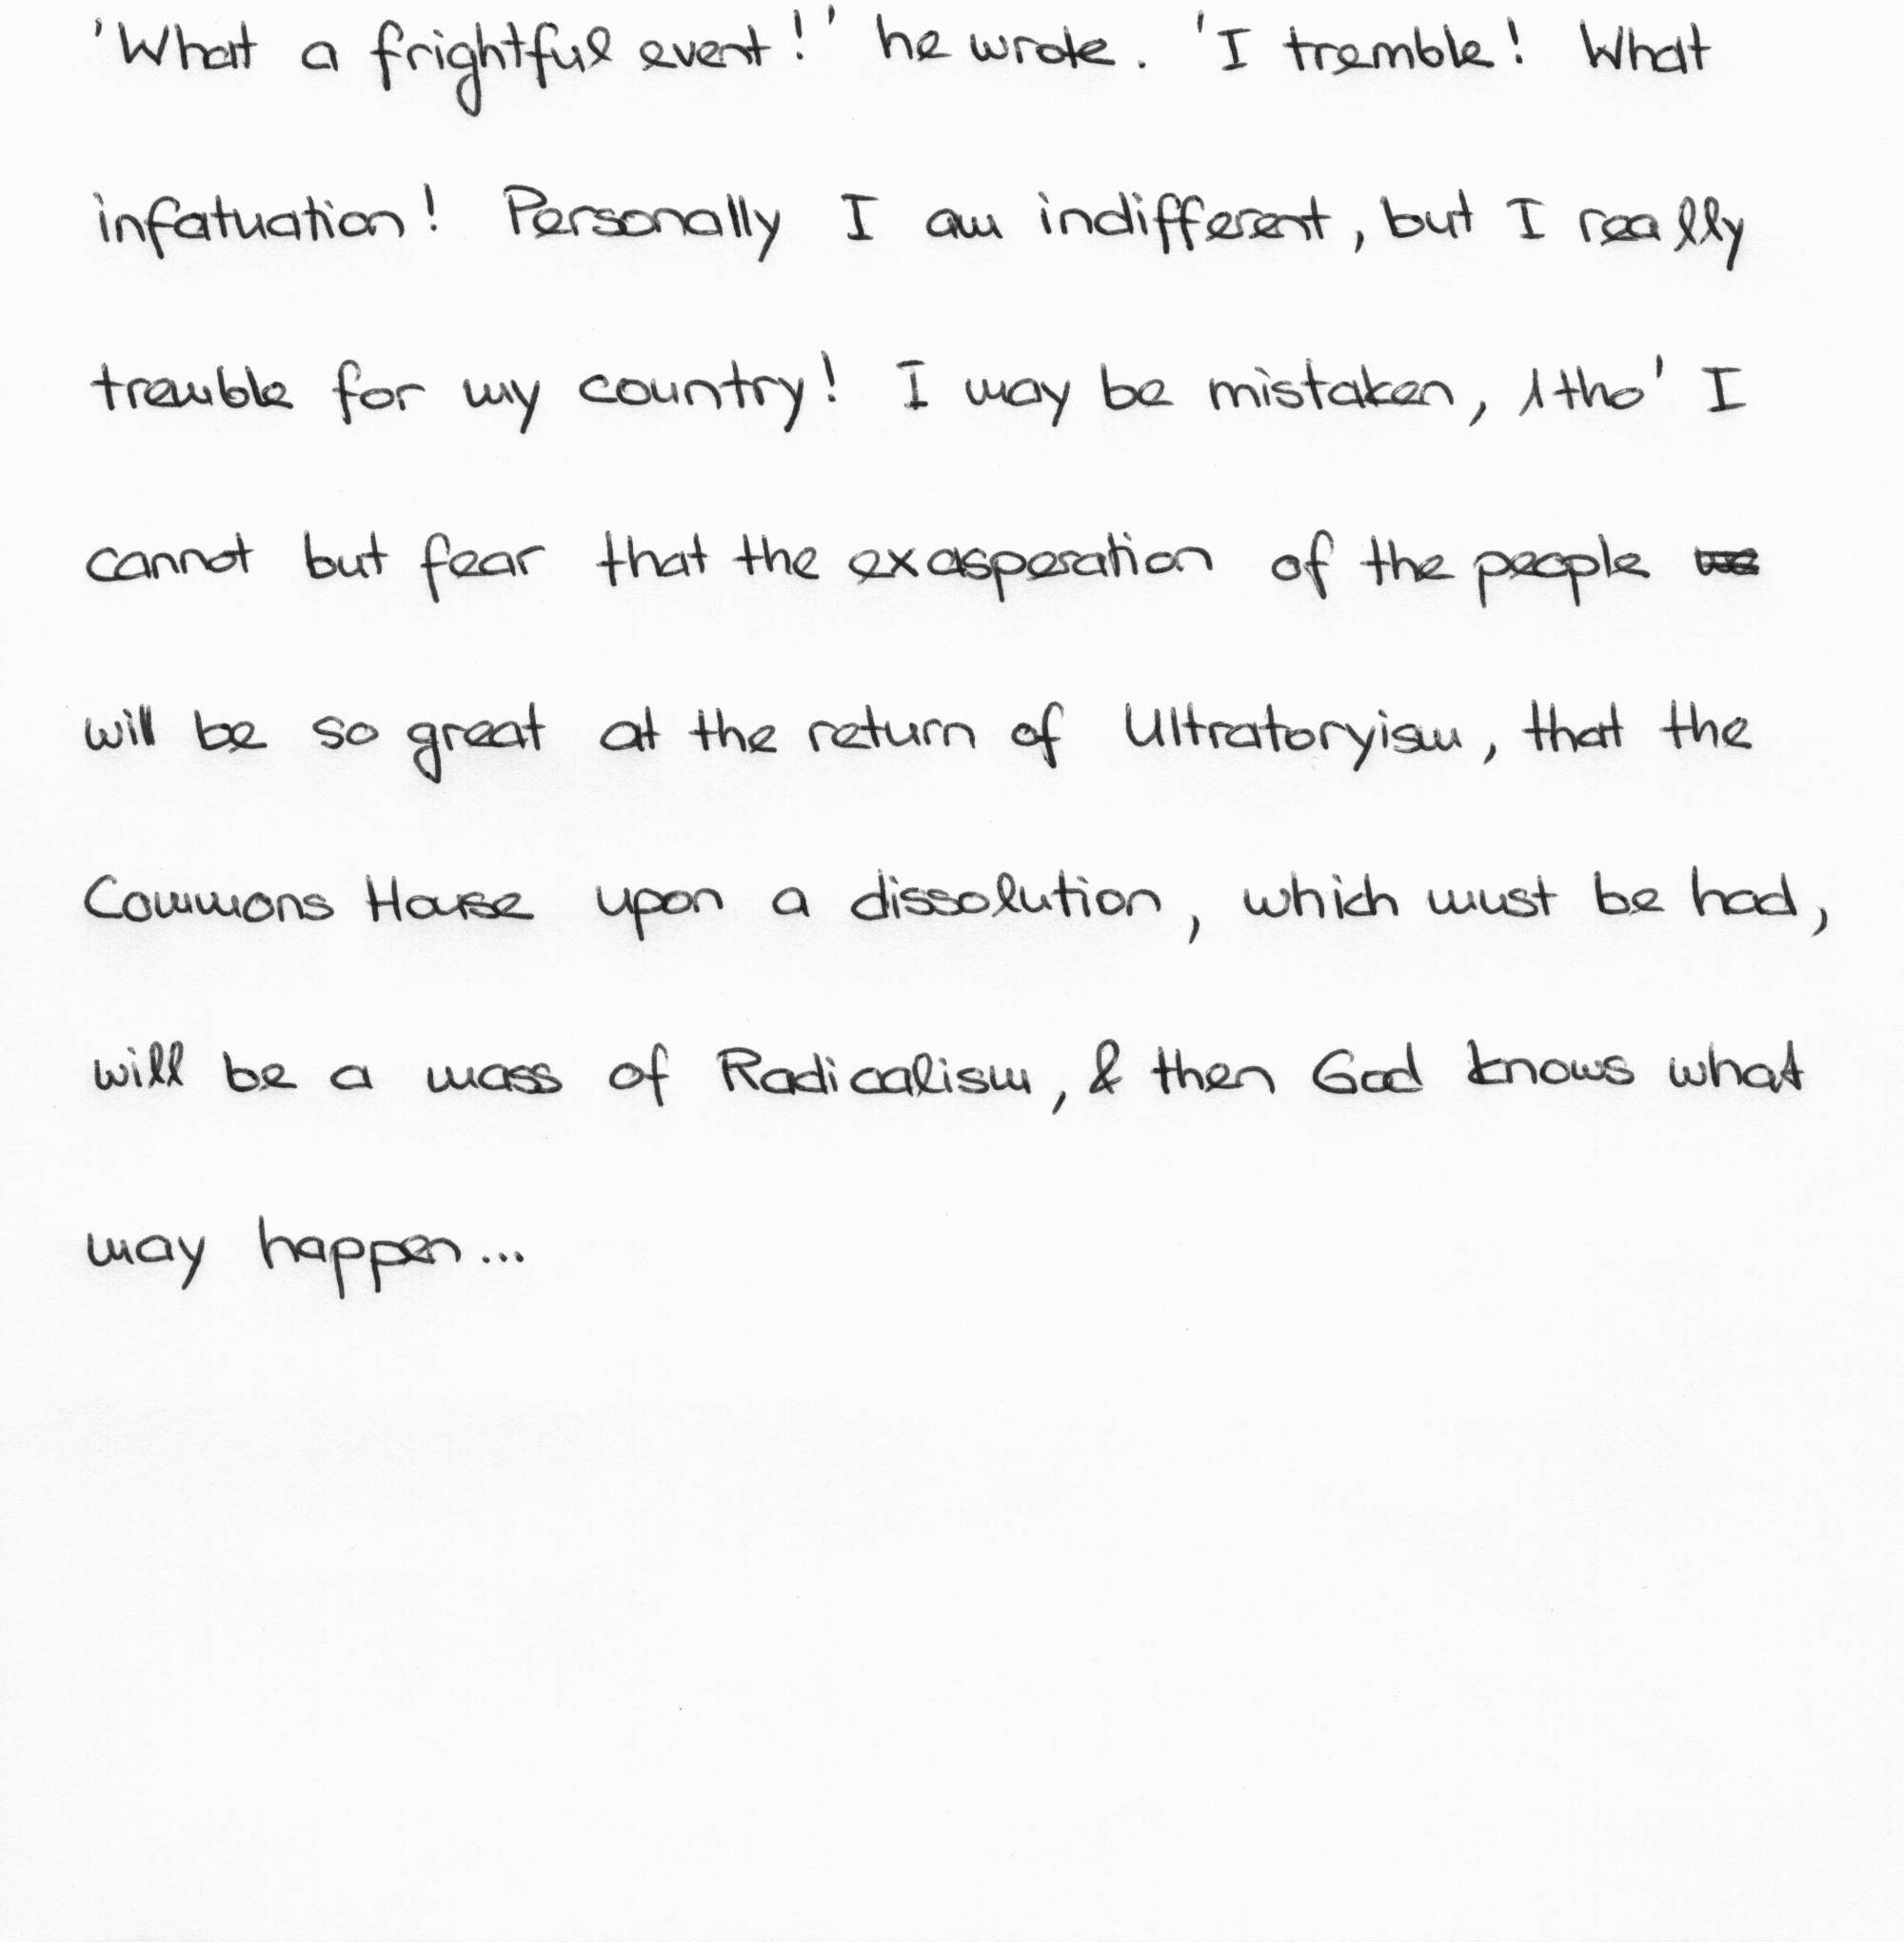 'What a frightful event!' he wrote. 'I tremble! What
infatuation! Personally I am indifferent, but I really
tremble for my country! I may be mistaken, 1tho' I
cannot but fear that the exasperation of the people
will be so great at the return of Ultratoryism, that the
Commons House upon a dissolution, which must be had,
will be a mass of Radicalism, & then God knows what
may happen...